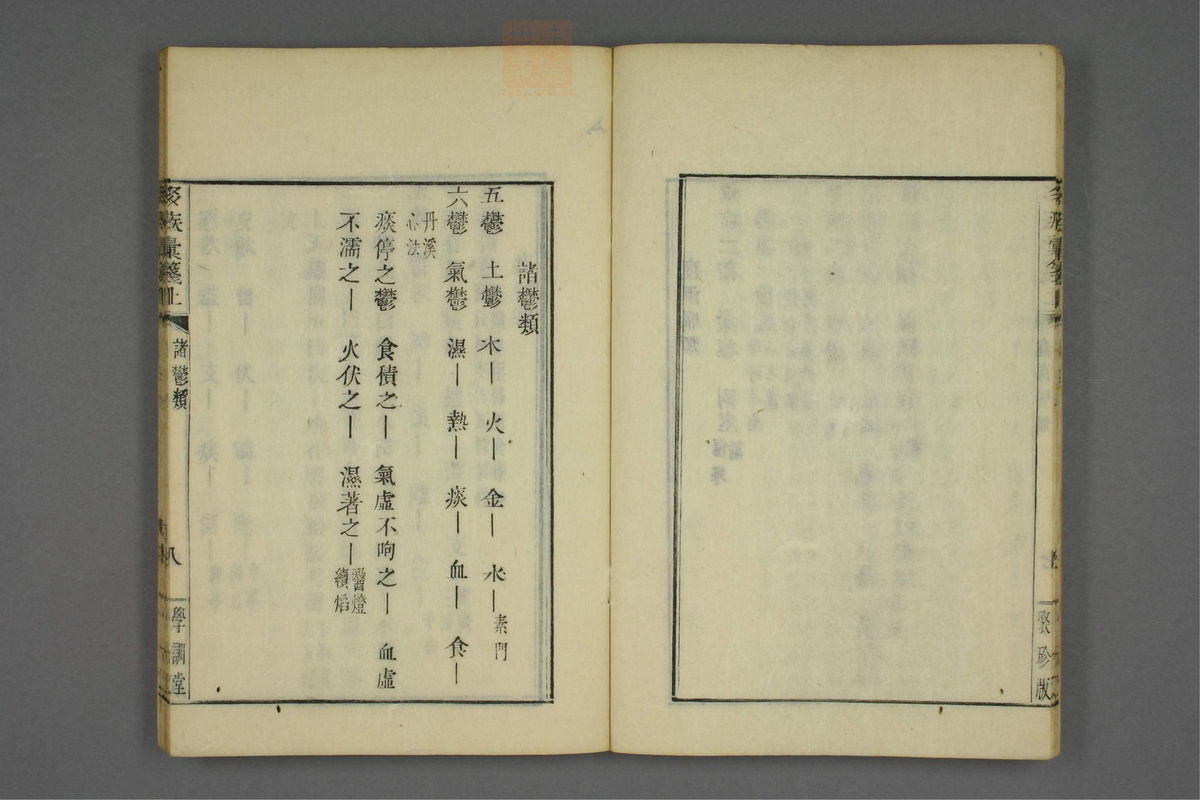 聚珍版
諸鬱類
五鬱 土鬱 木｜ 火｜ 金｜ 水｜素門
六鬱 氣鬱 濕｜ 熱｜ 痰｜ 血｜ 食｜
丹溪
心法
痰停之鬱 食積之｜ 氣虛不呴之｜ 血虛
不濡之｜ 火伏之｜ 濕著之｜醫燈
續焰
疾彙箋上
諸鬱類
八
學訓堂